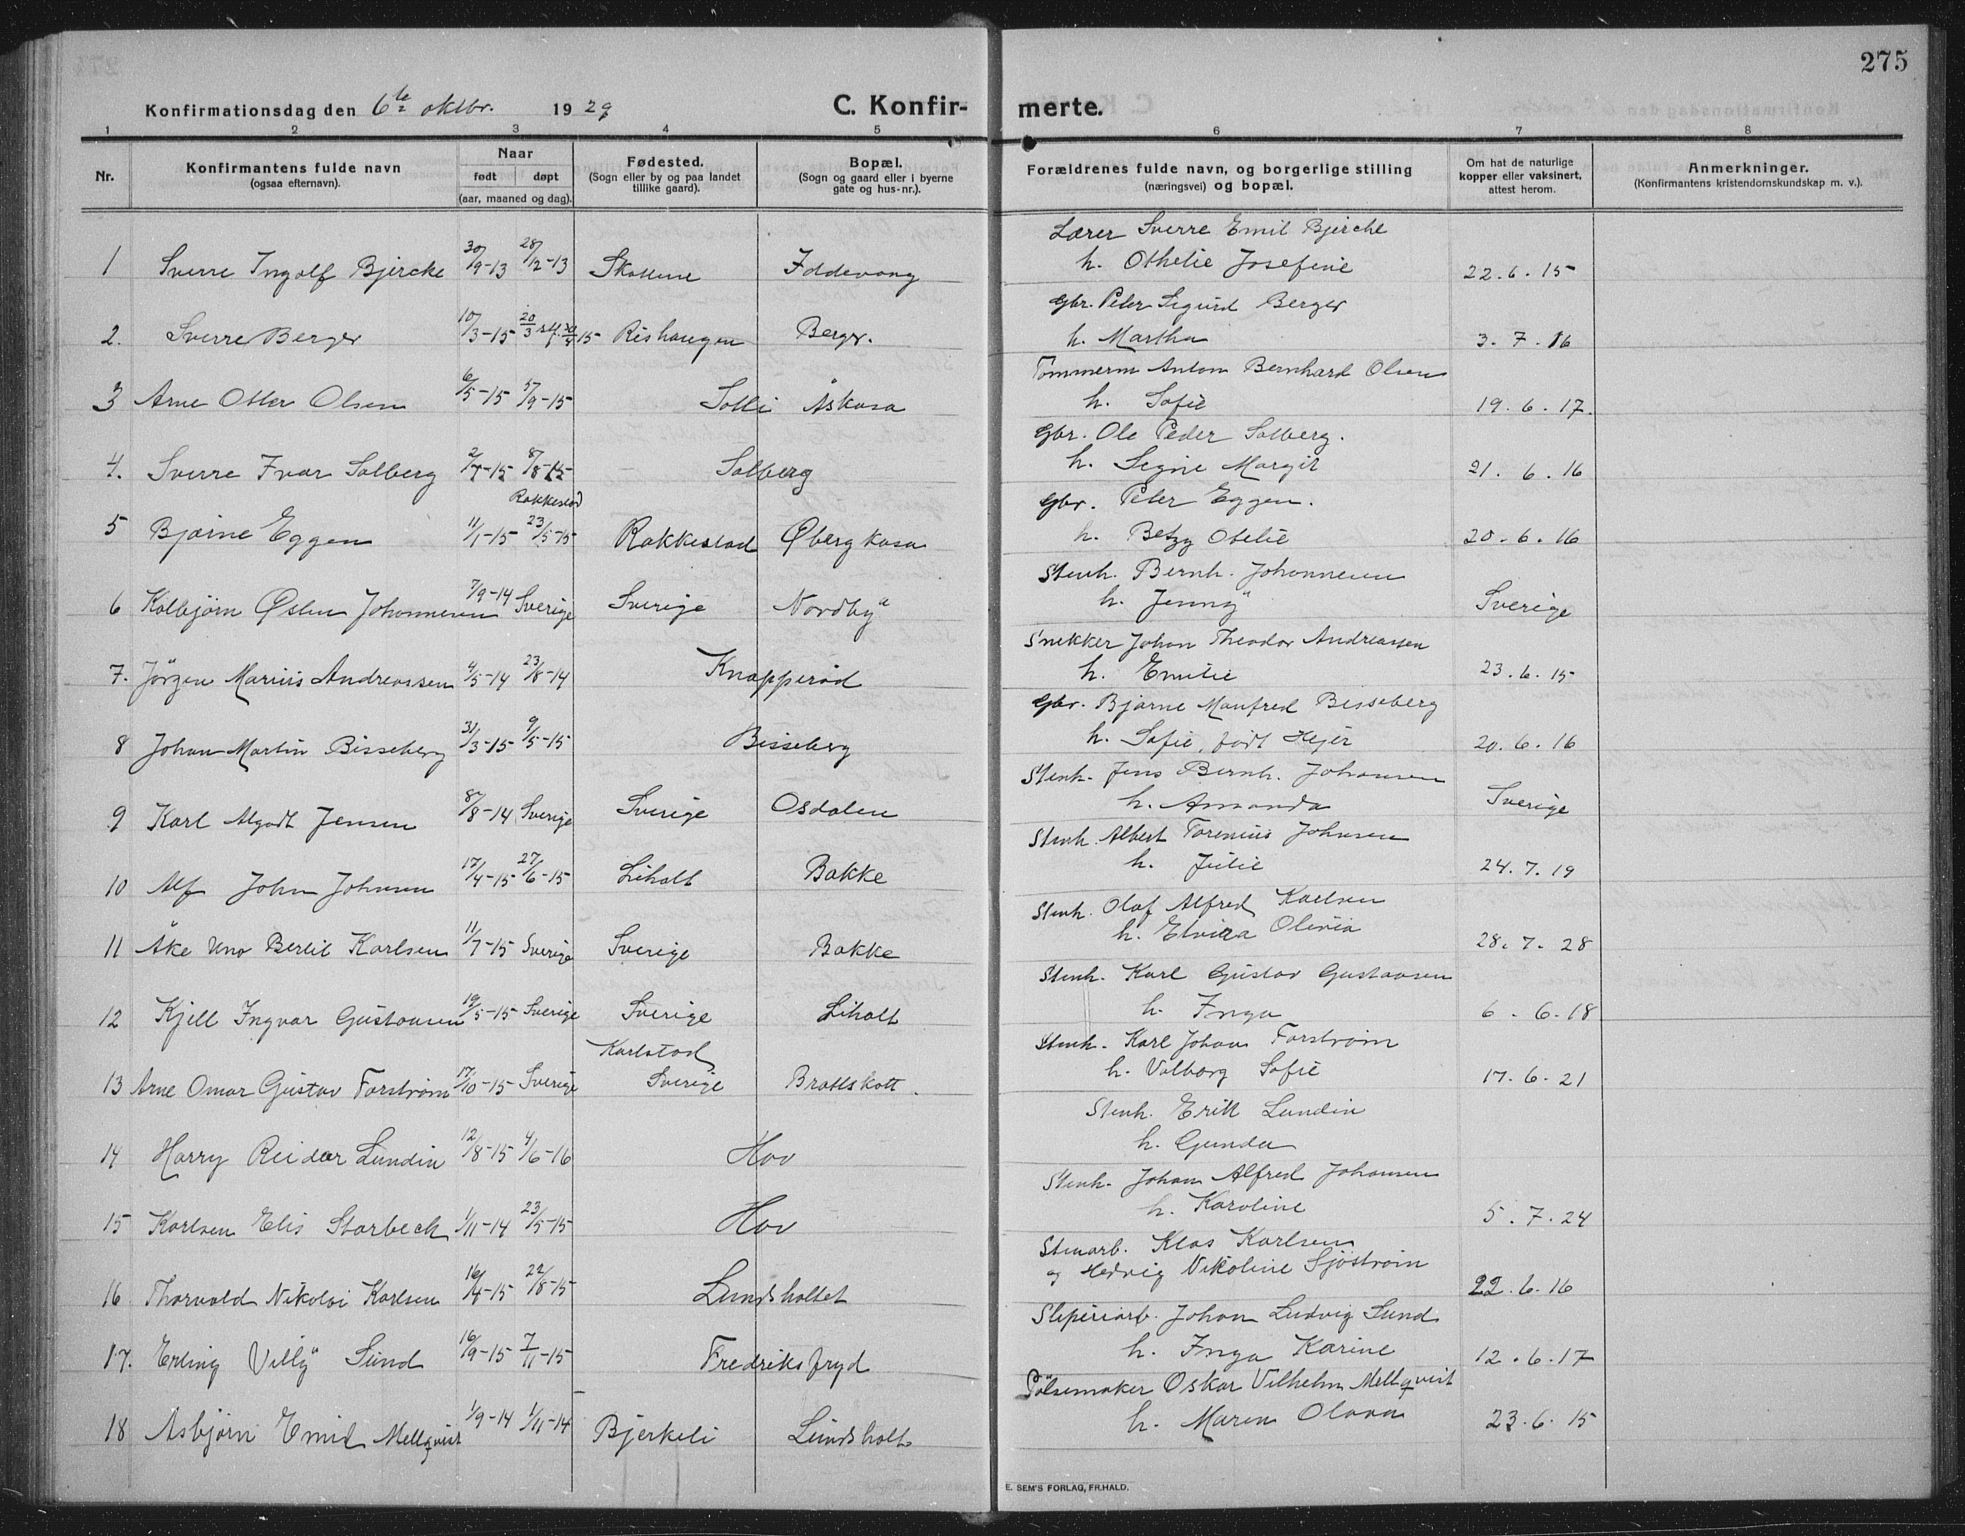 275
Konfirmationsdag den 6te oktbr. 1929 C. Konfirmerte.
1 2 3 4 5 6 7 8
Nr.
Konfirmantens fulde navn
(ogsaa efternavn).
Naar
født døpt
(aar, maaned og dag).
Fødested.
(Sogn eller by og paa landet
tillike gaard).
Bopæl.
(Sogn og gaard eller i byerne
gate og hus-nr.).
Forældrenes fulde navn, og borgerlige stilling
(næringsvei) og bopæl.
Om hat de naturlige
kopper eller vaksinert,
attest herom.
Anmerkninger.
(Konfirmantens kristendomskundskap m. v.).
Lærer Sverre Emil Bjercke
1 Sverre Ingolf Bjercke 30/9-13 28/12-13 Skottene Iddevang h. Othelie Josefine 22.6.15
Gbr. Peter Sigurd Berger
2. Sverre Berger 10/3-15 20/3 15 Rishaugen Berger. h. Martha 3.7.16
Tømmerm Anton Bernhard Olsen
3 Arne Otter Olsen 6/5-15 5/9-15 Solli Åskasa h. Sofie 19.6.17.
Gbr. Ole Peder Solberg.
4. Sverre Ivar Solberg 2/7-15 8/8-15 Solberg h. Signe Margit 21.6.16
Rakkestad
Gbr. Peter Eggen.
5 Bjarne Eggen 11/1-15 23/5-15 Rakkestad Øbergkasa h. Betzy Otelie 20.6.16
Stenh. Bernh. Johannesen
6 Kolbjørn Østen Johannesen 7/9-14 Sverige Sverige Nordby h. Jenny Sverige
Snekker Johan Theodor Andreassen
7. Jörgen Marius Andreassen 4/5-14 23/8-14 Knapperød h. Emilie 23.6.15
Gbr. Bjarne Manfred Bisseberg
8 Johan Martin Bisseberg 31/3-15 9/5-15 Bisseberg h. Sofie, født Hejer 20.6.16
Stenh. Jens Bernh. Johansen
9 Karl Algodt Jensen 8/8-14 Sverige Sverige Osdalen h. Amanda Sverige
Stenh. Albert Torenius Johnsen
10 Alf John Johnsen 17/4-15 27/6-15 Liholt Bakke h. Julie 24.7.19
Stenh. Olaf Alfred Karlsen
11 Åke Uno Bertil Karlsen 11/7-15 Sverige Sverige Bakke h. Elvira Olivia 28.7.28
Stenh. Karl Gustav Gustavsen
12 Kjell Ingvar Gustavsen 19/5-15 Sverige Sverige Liholt h. Inga 6.6.18
Karlstad
Stenh. Karl Johan Forstrøm
13 Arne Omar Gustav Forstrøm 17/10-15 Sverige Sverige Brattskott. h. Valborg Sofie 17.6.21
Stenh. Erik Lundin
14 Harry Reidar Lundin 12/8-15 4/6-16 Hov h. Gunda
Stenh. Johan Alfred Johansen
15 Karlsen Elis Starbeck 1/11-14 23/5-15 Hov h. Karoline 5.7.24
Stenarb. Klas Karlsen
16 Thorvald Nikolai Karlsen 16/4-15 22/8-15 Lundsholtet og Hedvig Nikoline Sjöstrøm 22.6.16
Sliperiarb. Johan Ludvig Sund
17. Erling Villy Sund 16/9-15 7/11-15 Fredriksfryd h. Inga Karine 12.6.17
Pølsemaker Oskar Vilhelm Mellqvist
18 Asbjørn Emil Mellqvist 1/9-14 1/11-14 Bjerkeli Lundsholt h. Maren Olava 23.6.15
E. SEM'S FORLAG, FR.HALD.